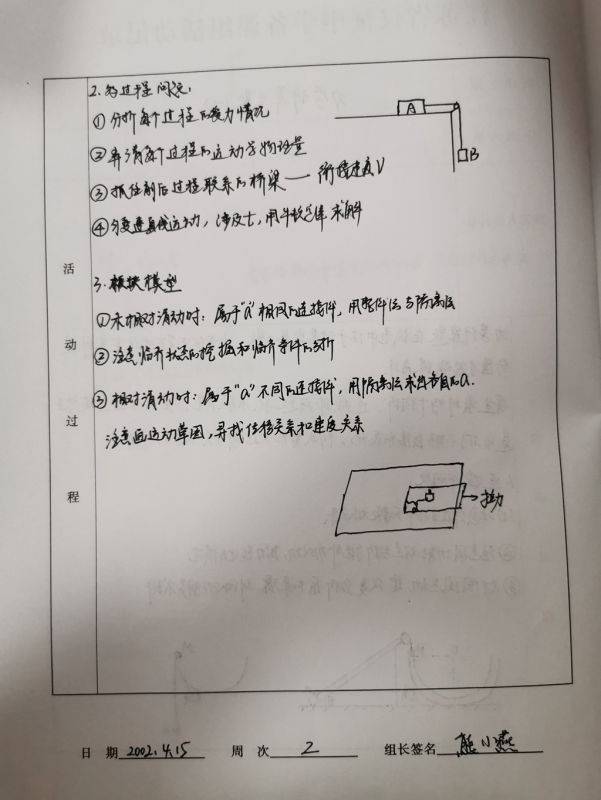 2. 多过程问题:
① 分析每个过程的受力情况
A
② 弄清每个过程的运动学物理量
B
③ 抓住前后过程联系的桥梁——衔接速度V
④ 匀变速直线运动, 涉及t, 用牛顿定律求解
3. 板块模型
① 未相对滑动时: 属于"a"相同的连接体, 用整体法与隔离法
② 注意临界状态的挖掘和临界条件的分析
③ 相对滑动时: 属于"a"不同的连接体, 用隔离法求出各自的a.
注意画运动草图, 寻找位移关系和速度关系
拉力
活动过程
日 期 2002.4.15 周 次 2 组长签名 熊小燕